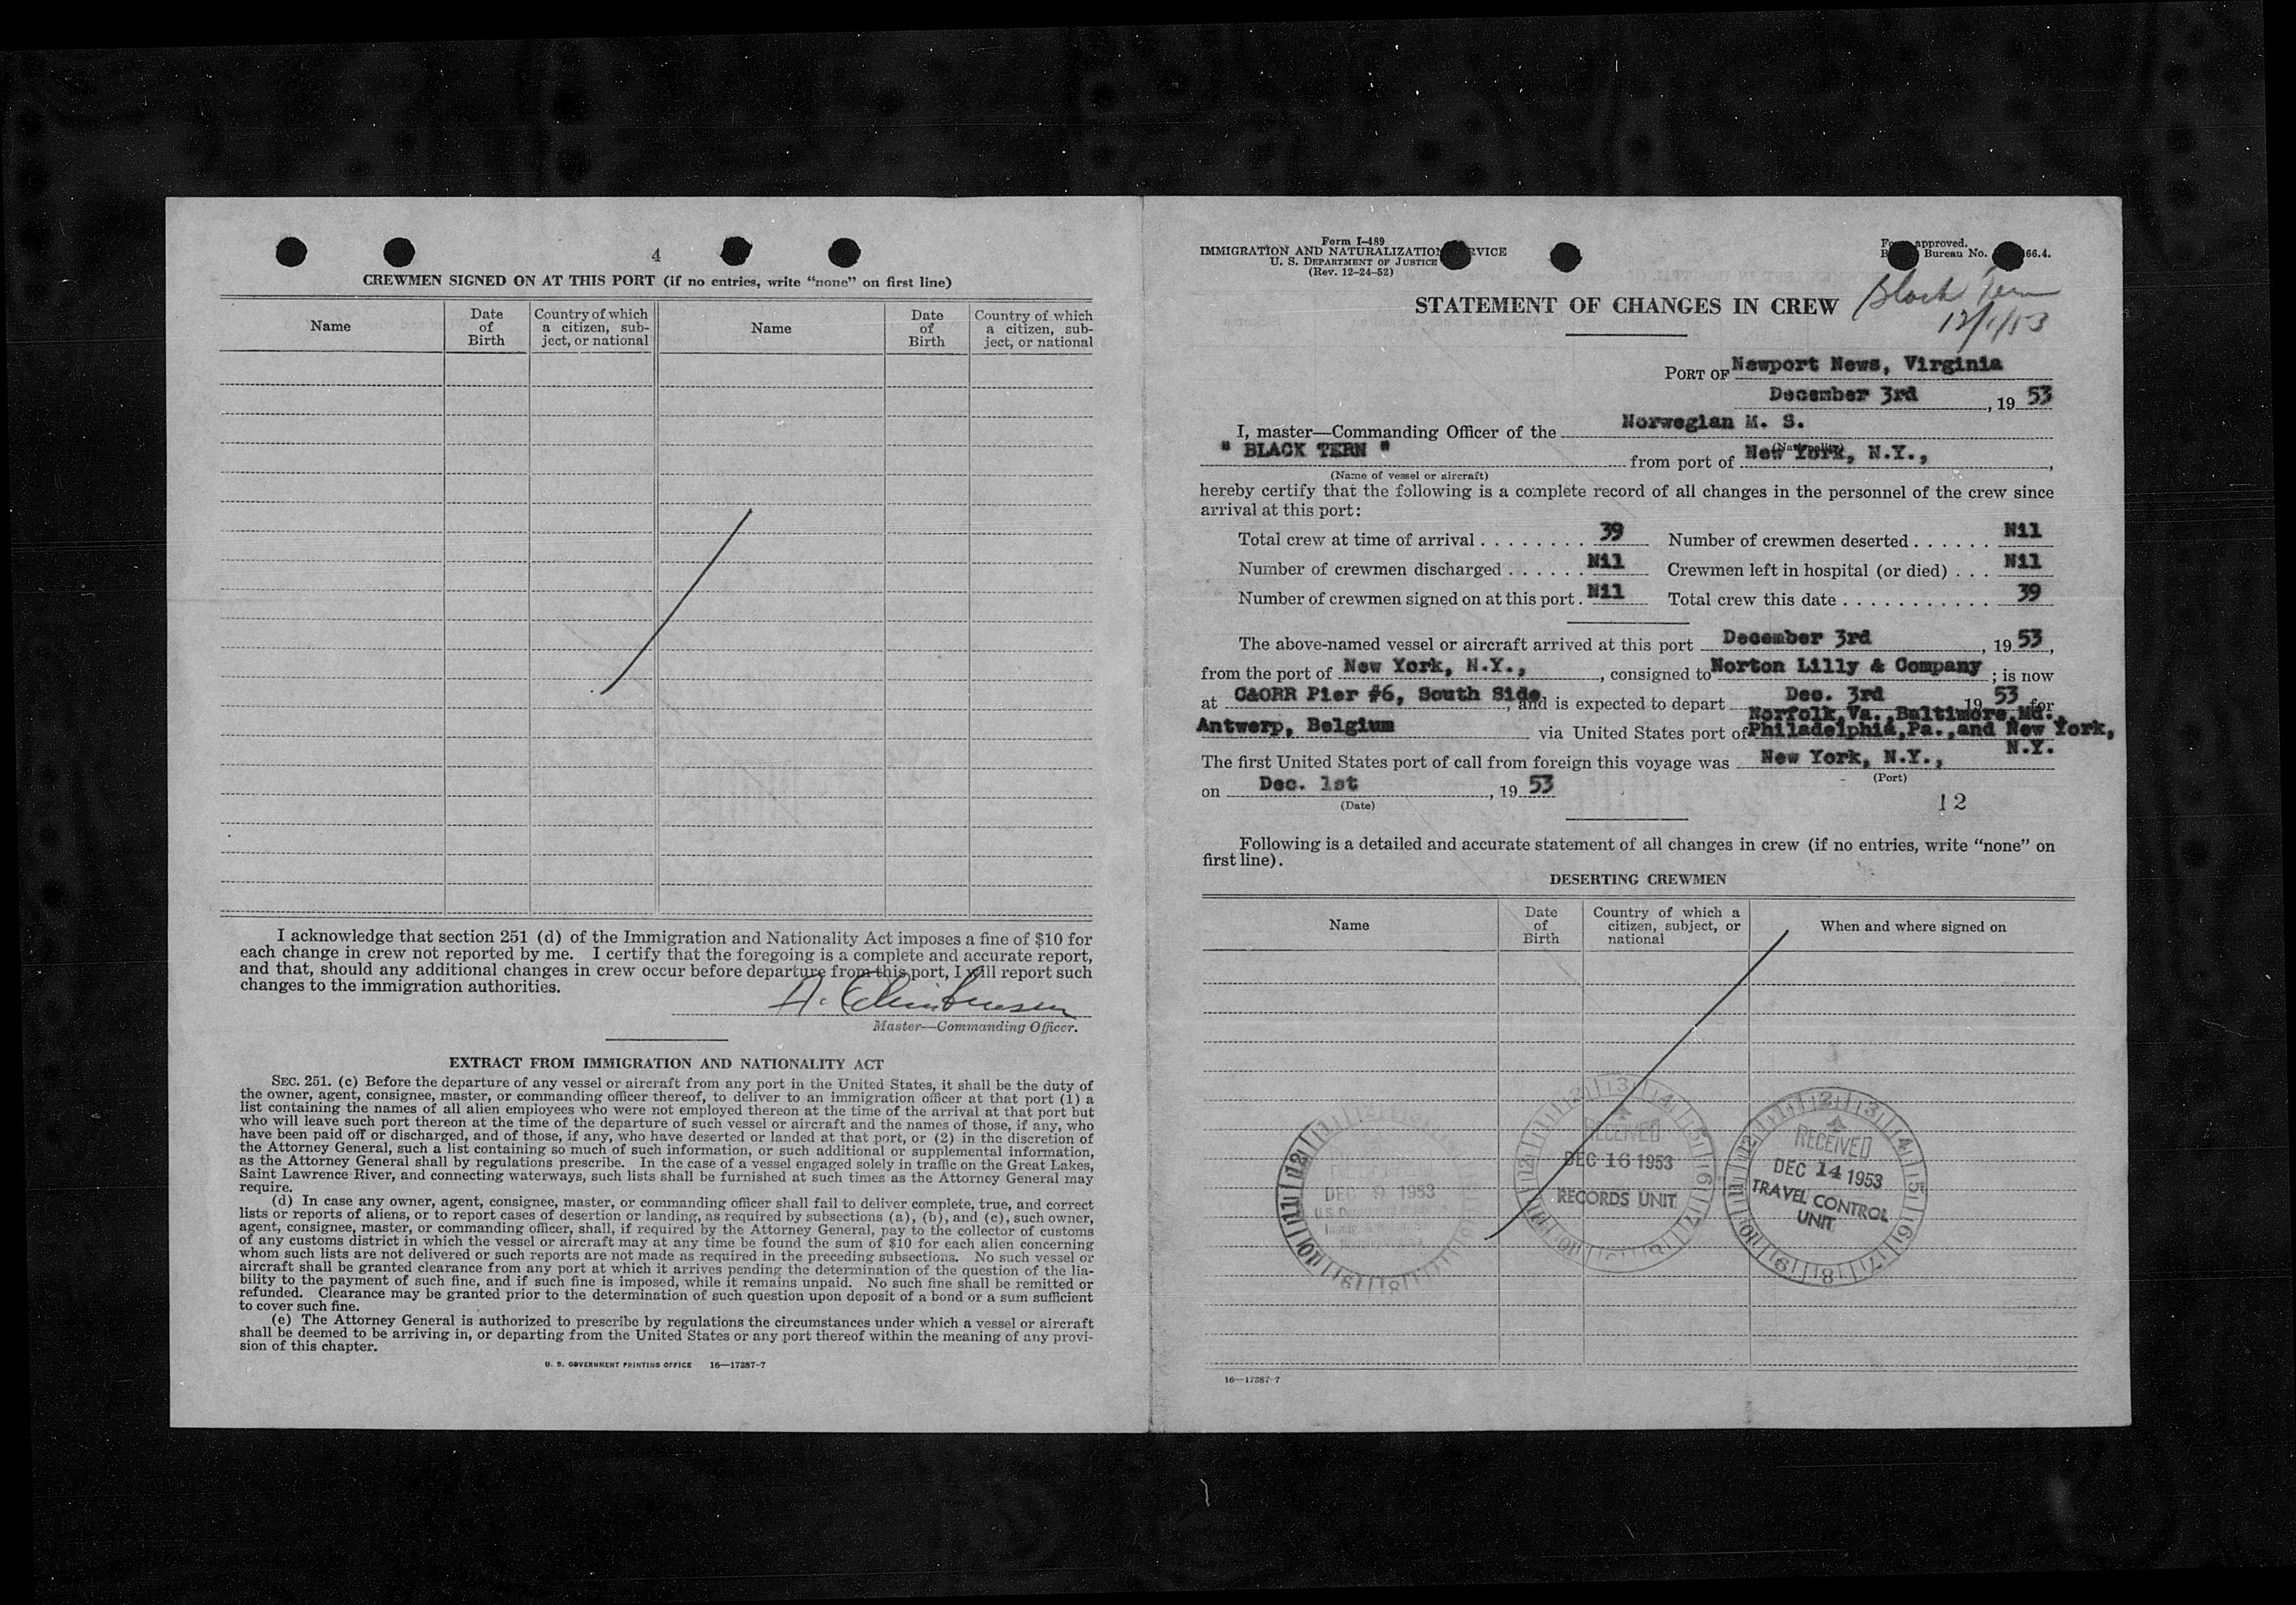 4
CREWMEN SIGNED ON AT THIS PORT (if no entries, write "none" on first line)
Name
Date of Birth
Country of which a citizen, sub-ject, or national
Name
Date of Birth
Country of which a citizen, sub-ject, or national
I acknowledge that section 251 (d) of the Immigration and Nationality Act imposes a fine of $10 for
each change in crew not reported by me. I certify that the foregoing is a complete and accurate report,
and that, should any additional changes in crew occur before departure from this port, I will report such
changes to the immigration authorities.
Master—Commanding Officer.
EXTRACT FROM IMMIGRATION AND NATIONALITY ACT
SEC. 251. (c) Before the departure of any vessel or aircraft from any port in the United States, it shall be the duty of
the owner, agent, consignee, master, or commanding officer thereof, to deliver to an immigration officer at that port (1) a
list containing the names of all alien employees who were not employed thereon at the time of the arrival at that port but
who will leave such port thereon at the time of the departure of such vessel or aircraft and the names of those, if any, who
have been paid off or discharged, and of those, if any, who have deserted or landed at that port, or (2) in the discretion of
the Attorney General, such a list containing so much of such information, or such additional or supplemental information,
as the Attorney General shall by regulations prescribe. In the case of a vessel engaged solely in traffic on the Great Lakes,
Saint Lawrence River, and connecting waterways, such lists shall be furnished at such times as the Attorney General may
require.
(d) In case any owner, agent, consignee, master, or commanding officer shall fail to deliver complete, true, and correct
lists or reports of aliens, or to report cases of desertion or landing, as required by subsections (a), (b), and (c), such owner,
agent, consignee, master, or commanding officer, shall, if required by the Attorney General, pay to the collector of customs
of any customs district in which the vessel or aircraft may at any time be found the sum of $10 for each alien concerning
whom such lists are not delivered or such reports are not made as required in the preceding subsections. No such vessel or
aircraft shall be granted clearance from any port at which it arrives pending the determination of the question of the lia-
bility to the payment of such fine, and if such fine is imposed, while it remains unpaid. No such fine shall be remitted or
refunded. Clearance may be granted prior to the determination of such question upon deposit of a bond or a sum sufficient
to cover such fine.
(e) The Attorney General is authorized to prescribe by regulations the circumstances under which a vessel or aircraft
shall be deemed to be arriving in, or departing from the United States or any port thereof within the meaning of any provi-
sion of this chapter.
U. S. GOVERNMENT PRINTING OFFICE 16—17387-7
Form I-489
IMMIGRATION AND NATURALIZATION RVICE
U. S. DEPARTMENT OF JUSTICE
(Rev. 12-24-52)
approved.
Bureau No. 66.4.
STATEMENT OF CHANGES IN CREW
Black Tern
12/1/53
PORT OF Newport News, Virginia
December 3rd, 19 53
I, master—Commanding Officer of the Norwegian M. S.
(Nationality)
" BLACK TERN " from port of New York, N.Y.,,
(Name of vessel or aircraft)
hereby certify that the following is a complete record of all changes in the personnel of the crew since
arrival at this port:
Total crew at time of arrival . . . . . . . . 39 Number of crewmen deserted . . . . . . Nil
Number of crewmen discharged . . . . . . Nil Crewmen left in hospital (or died) . . . Nil
Number of crewmen signed on at this port . Nil Total crew this date . . . . . . . . . . . . 39
The above-named vessel or aircraft arrived at this port December 3rd, 19 53,
from the port of New York, N.Y.,, consigned to Norton Lilly & Company; is now
at C&ORR Pier #6, South Side, and is expected to depart Dec. 3rd 19 53 for
Norfolk,Va.,Baltimore,Md.,
Antwerp, Belgium via United States port of Philadelphia,Pa.,and New York,
N.Y.
The first United States port of call from foreign this voyage was New York, N.Y.,
(Port)
on Dec. 1st, 19 53
(Date)
12
Following is a detailed and accurate statement of all changes in crew (if no entries, write "none" on
first line).
DESERTING CREWMEN
Name
Date of Birth
Country of which a citizen, subject, or national
When and where signed on
DEC 9 1953
RECEIVED
DEC 16 1953
RECORDS UNIT
RECEIVED
DEC 14 1953
TRAVEL CONTROL
UNIT
16—17387-7